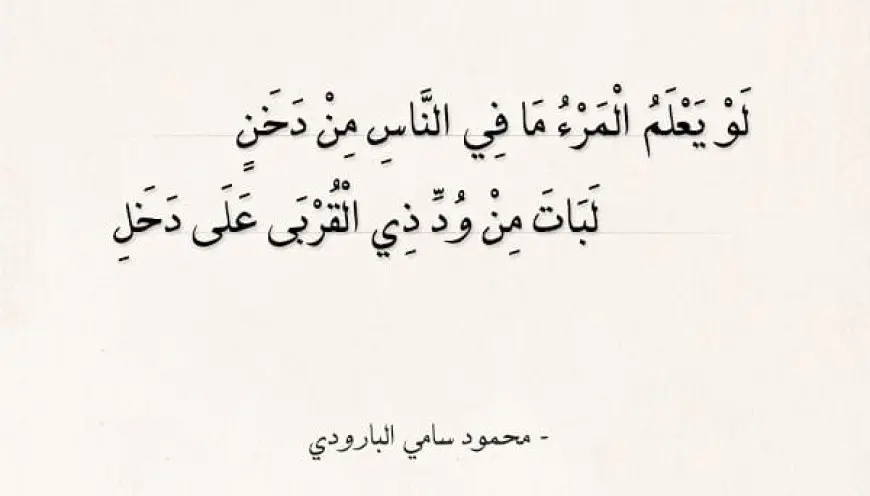 لَوْ يَعْلَمُ الْمَرْءُ مَا فِي النَّاسِ مِنْ دَخَنٍ
لَبَاتَ مِنْ وُدِّ ذِي الْقُرْبَى عَلَى دَخَلِ
- محمود سامي البارودي